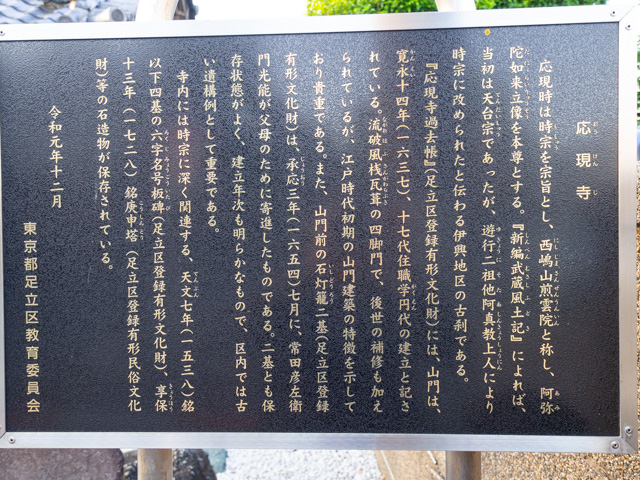 応現寺
応現時は時宗を宗旨とし、西嶋山煎雲院と称し、阿弥
陀如来立像を本尊とする。『新編武蔵風土記』によれば、
当初は天台宗であったが、遊行二祖他阿真教上人により
時宗に改められたと伝わる伊興地区の古刹である。
『応現寺過去帳』(足立区登録有形文化財)には、山門は、
寛永十四年(一六三七)、十七代住職学円代の建立と記さ
れている。流破風桟瓦葺の四脚門で、後世の補修も加え
られているが、江戸時代初期の山門建築の特徴を示して
おり貴重である。また、山門前の石灯籠二基(足立区登録
有形文化財)は、承応三年(一六五四)七月に、常田彦左衛
門光能が父母のために寄進したものである。二基とも保
存状態がよく、建立年次も明らかなもので、区内では古
い遺構例として重要である。
寺内には時宗に深く関連する、天文七年(一五三八)銘
以下四基の六字名号板碑(足立区登録有形文化財)、享保
十三年(一七二八)銘庚申塔(足立区登録有形民俗文化
財)等の石造物が保存されている。
令和元年十二月
東京都足立区教育委員会